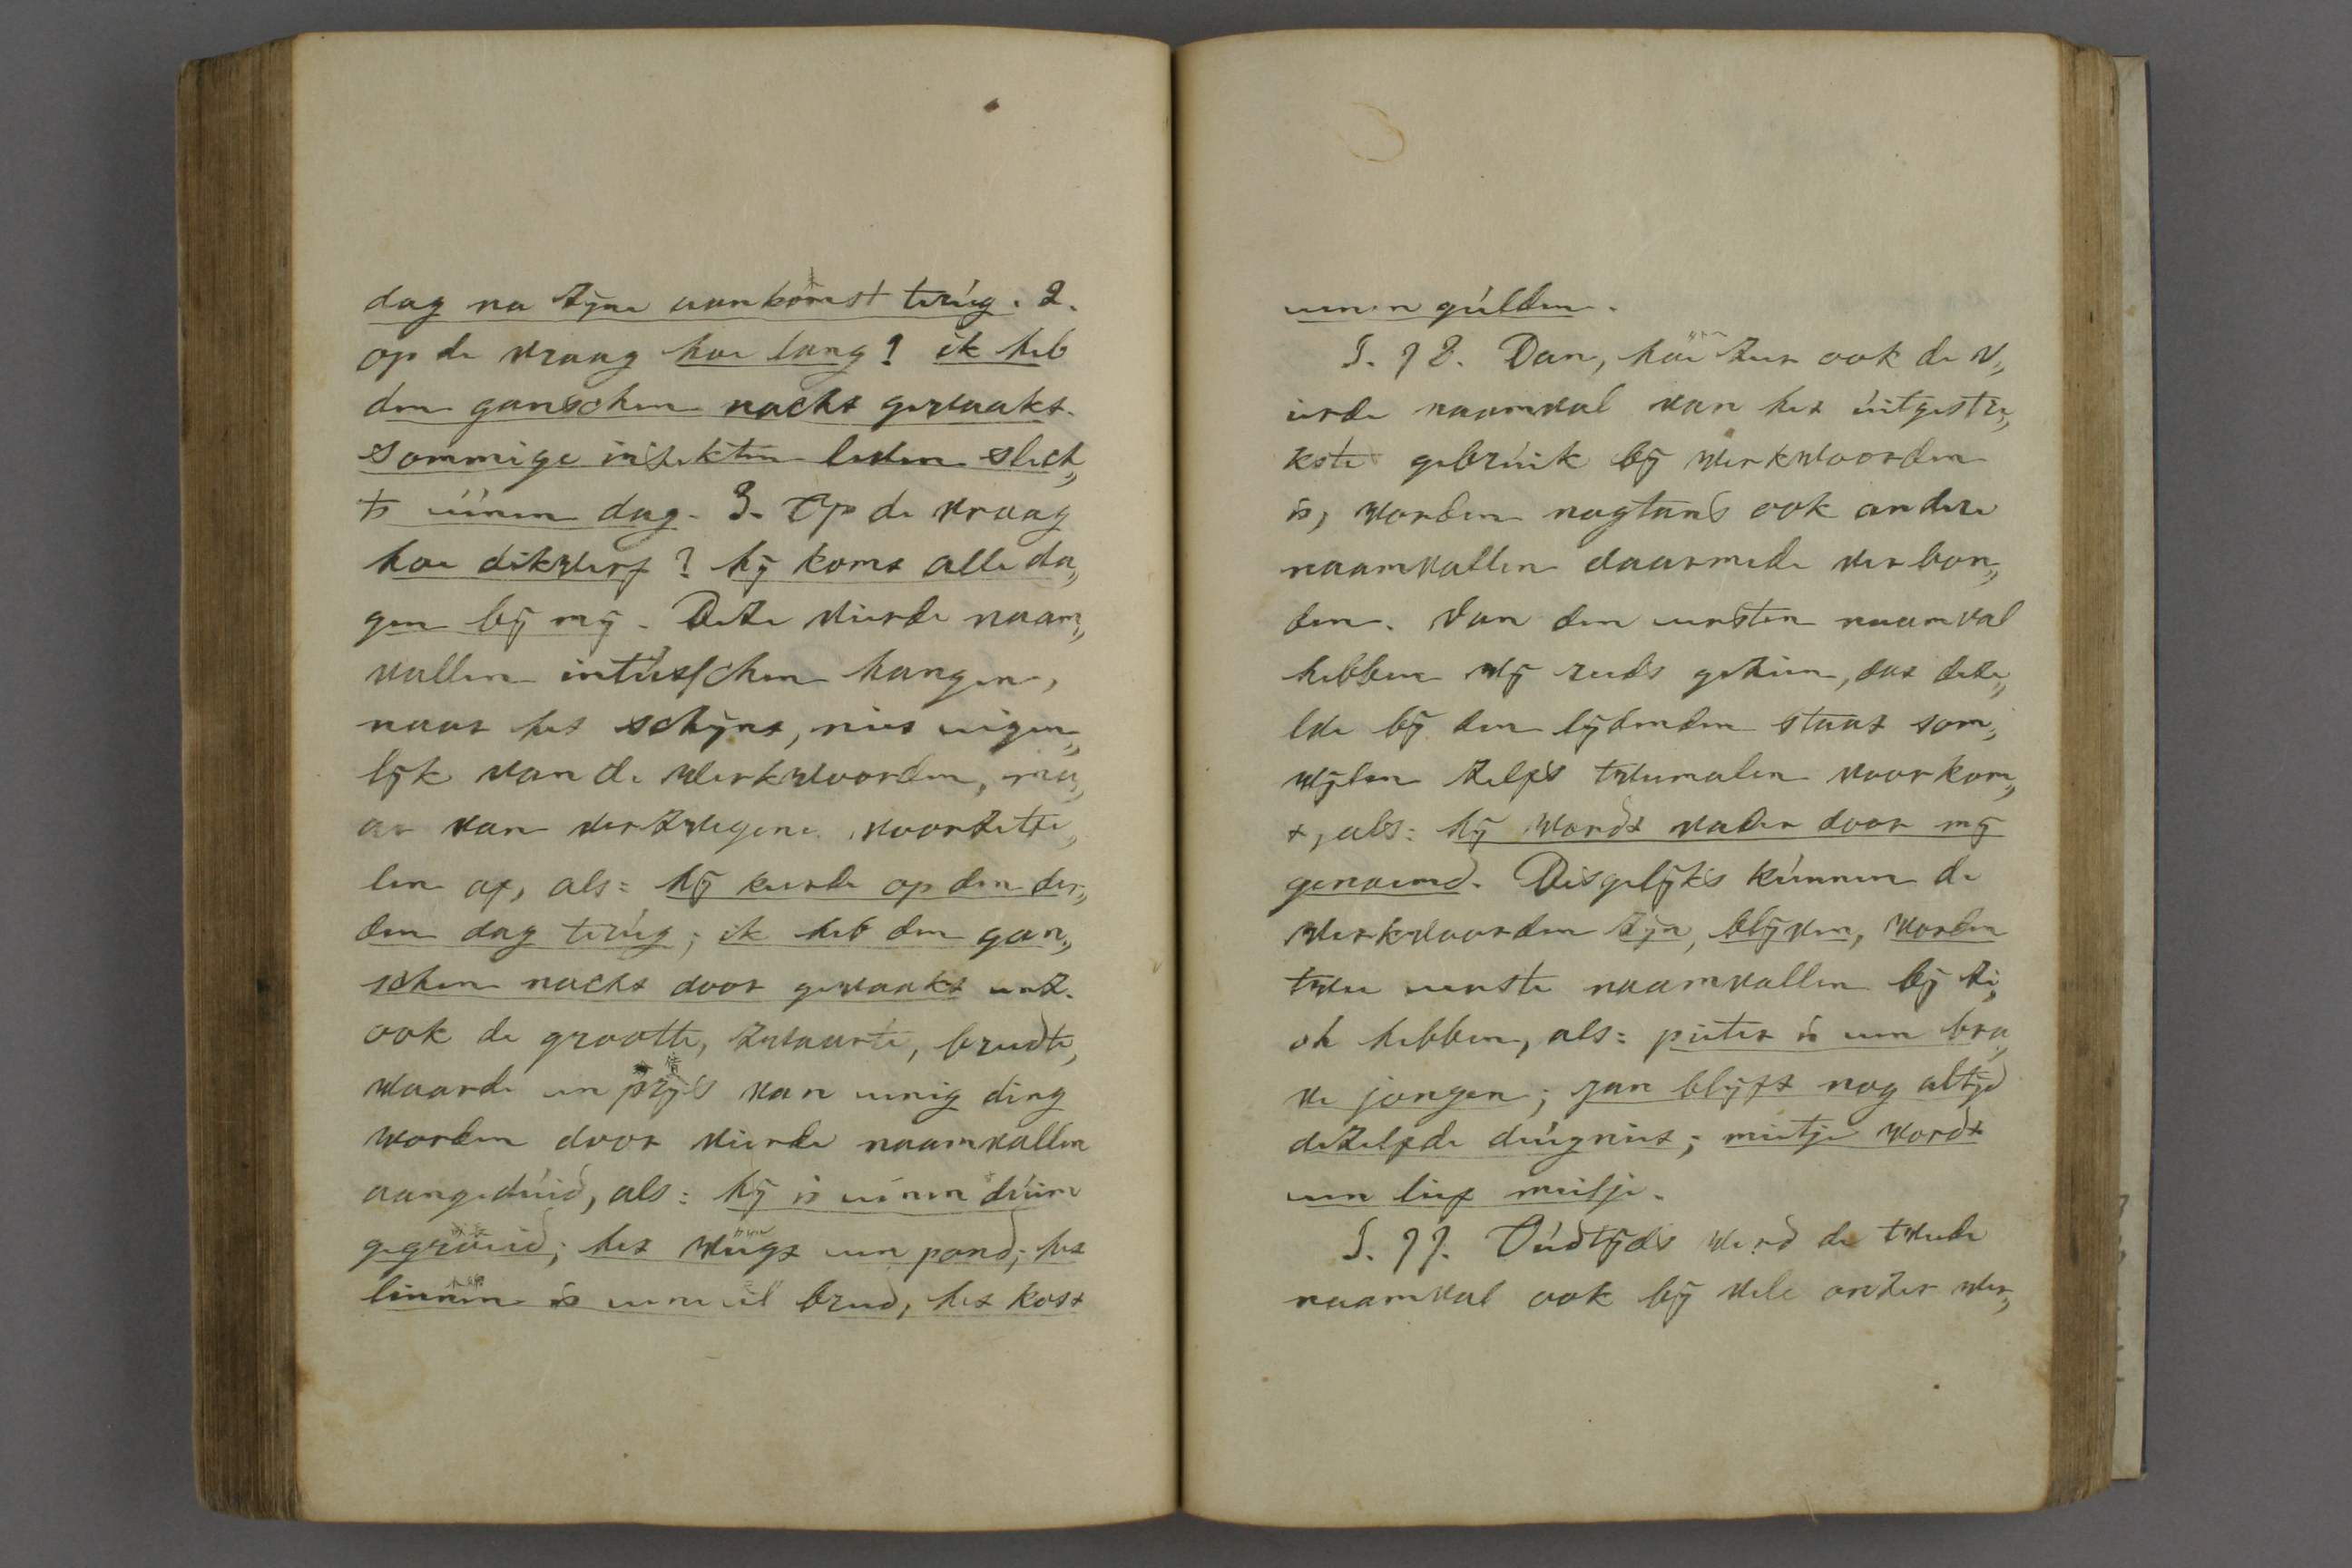 dag na zyne aankomst terúg. 2.
op de vraag hoe lang? ik heb
den ganschen nacht gewaakt.
sommige insekten leven slech„
ts éénen dag. 3. Op de vraag
hoe dikwerf? hÿ komt alle da„
gen bÿ mÿ. Deze vierde naam„
vallen intússchen hangen,
naar het schÿnt, niet eigen„
lÿk van de werkwoorden, ma„
ar van verzwegene voorzetse„
len af, als: hÿ keerde op den der„
den dag terúg; ik heb den gan„
schen nacht door gewaakt enz.
ook de grootte, zwaarte, breedte,
waarde en prÿs van eenig ding
worden door vierde naamvallen
aangedúid, als: hÿ is éénen dúim
gegroeid; het weegt een pond; het
linnen is eene el breed, het kost
eenen gúlden.
§. 98. Dan, hoe zeer ook de v„
ierde naamval van het úitgestre„
kste gebrúik bÿ werkwoorden
is, worden nogtans ook andere
naamvallen daarmede verbon„
den. Van den eersten naamval
hebben wÿ reeds gezien, dat deze„
lve bÿ den lÿdenden staat som„
wÿlen zelfs tweemalen voorkom„
t, als: hÿ wordt vader door mÿ
genoemd. Desgelÿks kúnnen de
werkwoorden zÿn, blÿven, worden
twee eerste naamvallen bÿ zi„
ch hebben, als: pieter is een bra„
ve jongen; jan blÿft nog altÿd
dezelfde deúgniet; mietje wordt
een lief meisje.
§. 99. Oúdtÿds werd de tweede
naamval ook bÿ vele onzer wer„